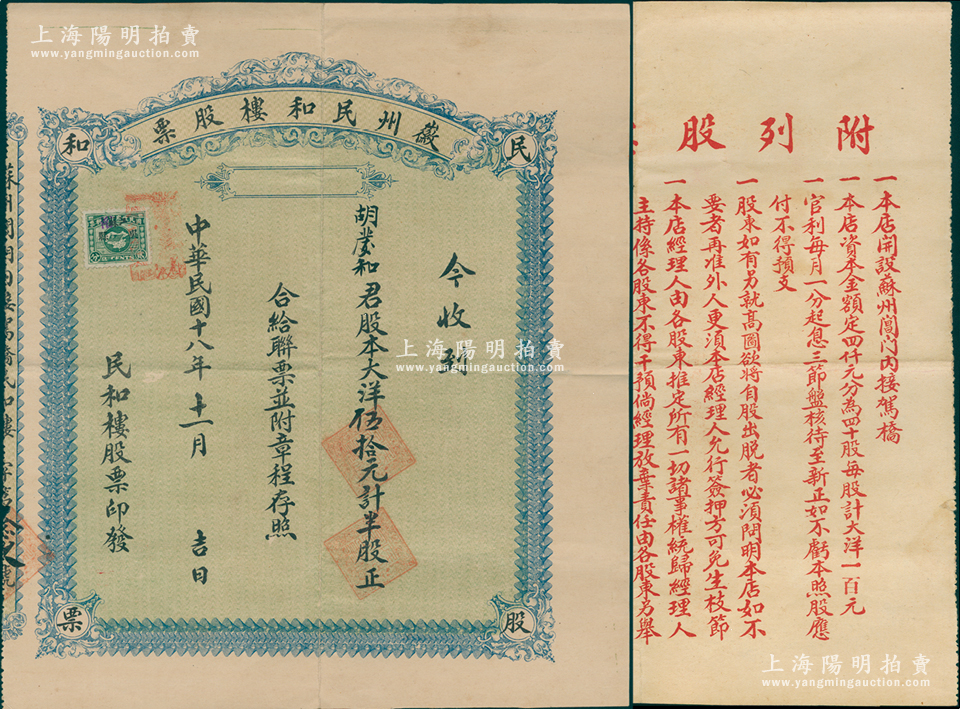 上海陽明拍賣
www.yangmingauction.com
徽州民和樓股票
民
和
股
票
今收到
君股本大洋伍拾元計半股正
合給聯票並附章程存照
中華民國十八年十一月 吉日
民和樓股票印發
上海陽明拍賣
www.yangmingauction.com
附列股
一本店開設蘇州閶門內接駕橋
一本店資本金額定四仟元分為四十股每股計大洋一百元
一官利每月一分起息三節盤核待至新正如不虧本照股應
付不得預支
一股東如有另就高圖欲將自股出脫者必須問明本店如不
要者再准外人更須本店經理人允行簽押方可免生枝節
一本店經理人由各股東推定所有一切諸事權統歸經理人
主持係各股東不得干預倘經理放棄責任由各股東另舉
上海陽明拍賣
www.yangmingauction.com